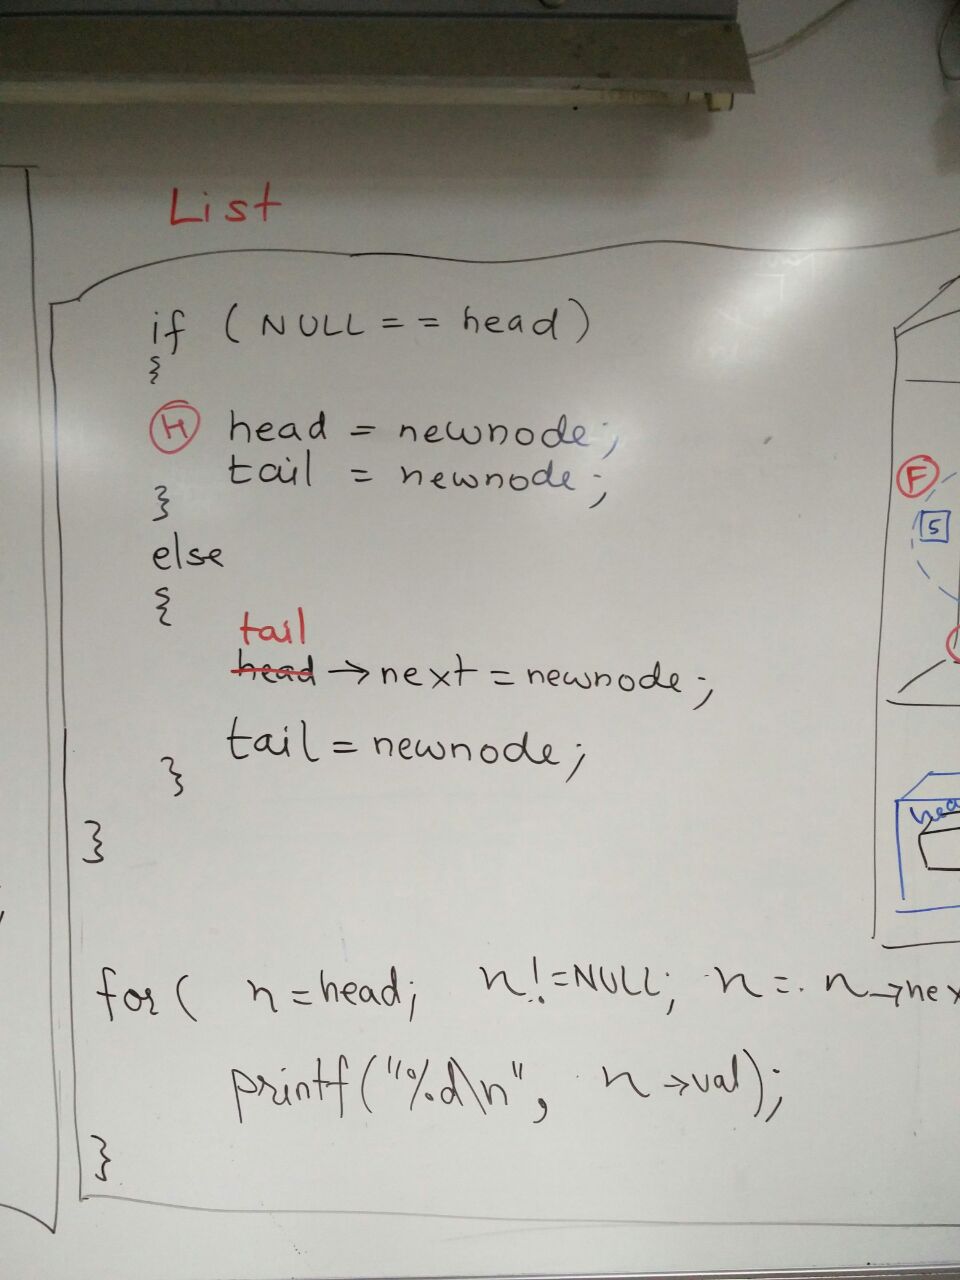 List
if ( NULL = = head )
{
H head = newnode;
tail = newnode;
}
else
{
tail
head → next = newnode;
tail = newnode;
}
}
for ( n = head; n != NULL; n = n → nex
printf ("%d\n", n → val);
}
F
5
hea